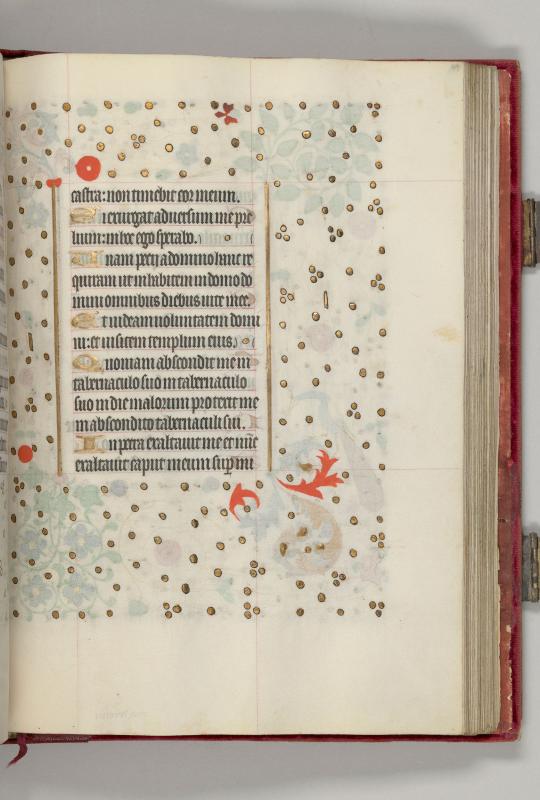 castra: non timebit cor meum.
Si exurgat aduersum me pre
lium: in hoc ego sperabo.
Unam pecij a domino hanc re
quiram ut inhabitem in domo do
mini omnibus diebus uite mee.
Et uideam uoluntatem domi
ni: et uisitem templum eius.
Quoniam abscondit me in
tabernaculo suo in tabernaculo
suo in die malorum protexit me
in abscondito tabernaculi sui.
In petra exaltauit me et nūc
exaltauit caput meum sup̄ mi